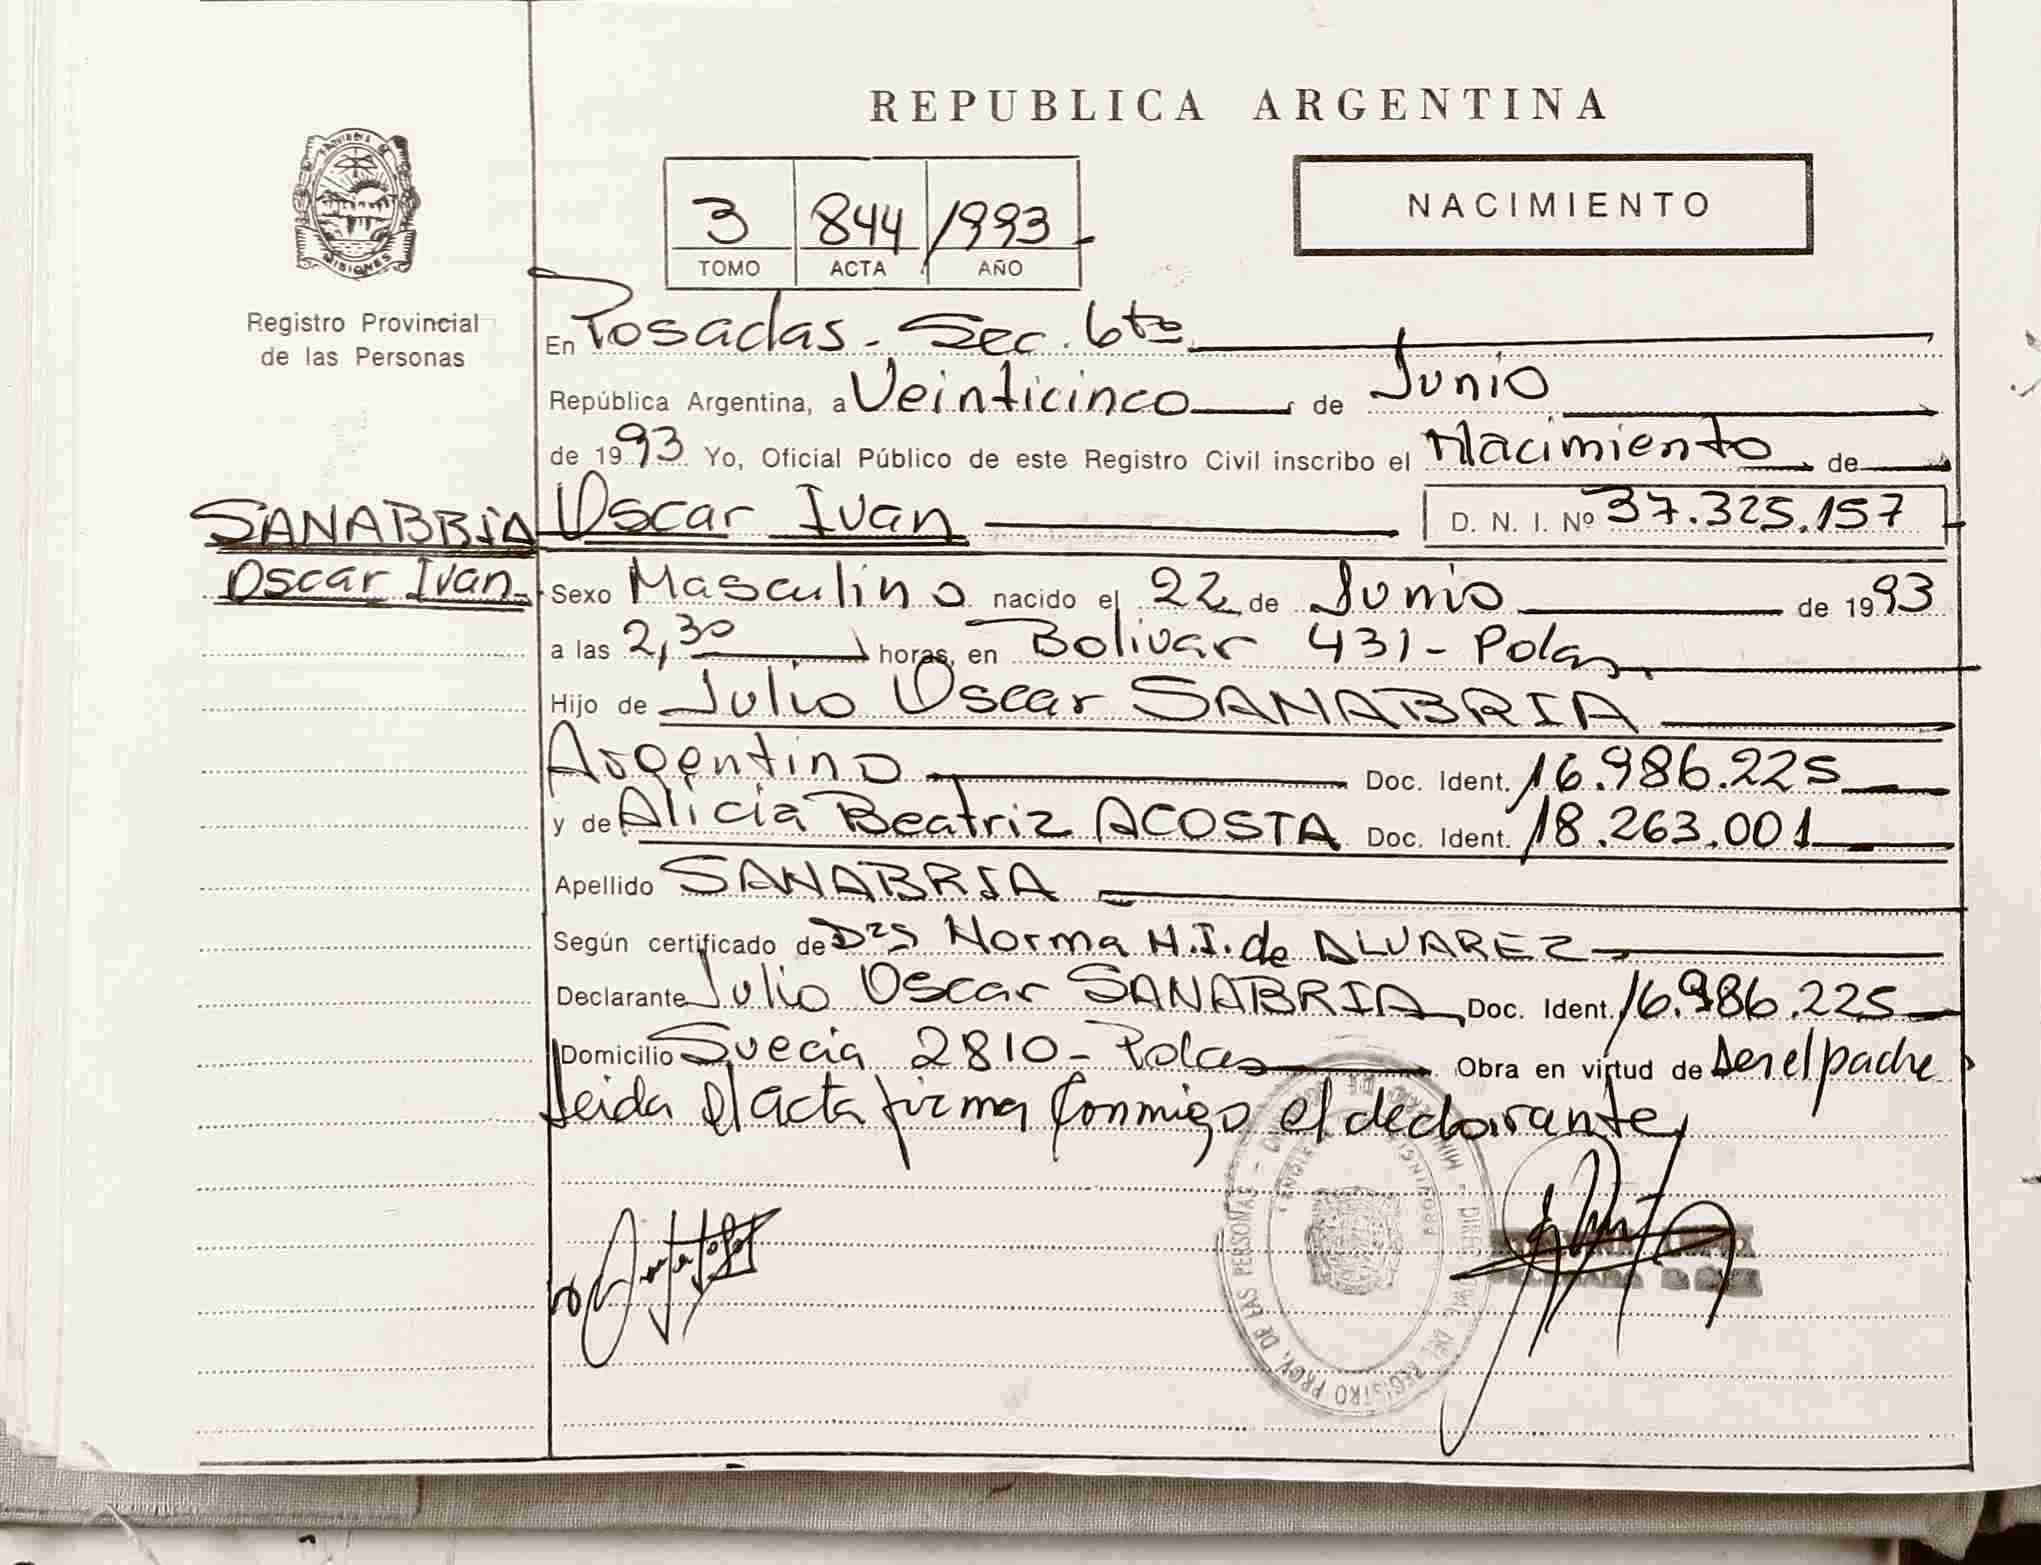 REPUBLICA ARGENTINA
PROVINCIA DE
MISIONES
Registro Provincial
de las Personas
3 844 1993
TOMO ACTA AÑO
NACIMIENTO
En Posadas - Sec. 6ta
República Argentina, a Veinticinco de Junio
de 1993 Yo, Oficial Público de este Registro Civil inscribo el Nacimiento de
SANABRIA Oscar Ivan D. N. I. Nº 37.325.157
Oscar Ivan
Sexo Masculino nacido el 22 de Junio de 1993
a las 2,30 horas, en Bolivar 431 - Pdas
Hijo de Julio Oscar SANABRIA
Argentino Doc. Ident. 16.986.225
y de Alicia Beatriz ACOSTA Doc. Ident. 18.263.001
Apellido SANABRIA
Según certificado de Norma H.I. de ALVAREZ
Declarante Julio Oscar SANABRIA Doc. Ident. 16.986.225
Domicilio Suecia 2810 - Pdas Obra en virtud de Ser el padre
Leida el acta firma conmigo el declarante
REGISTRO PROV. DE LAS PERSONAS